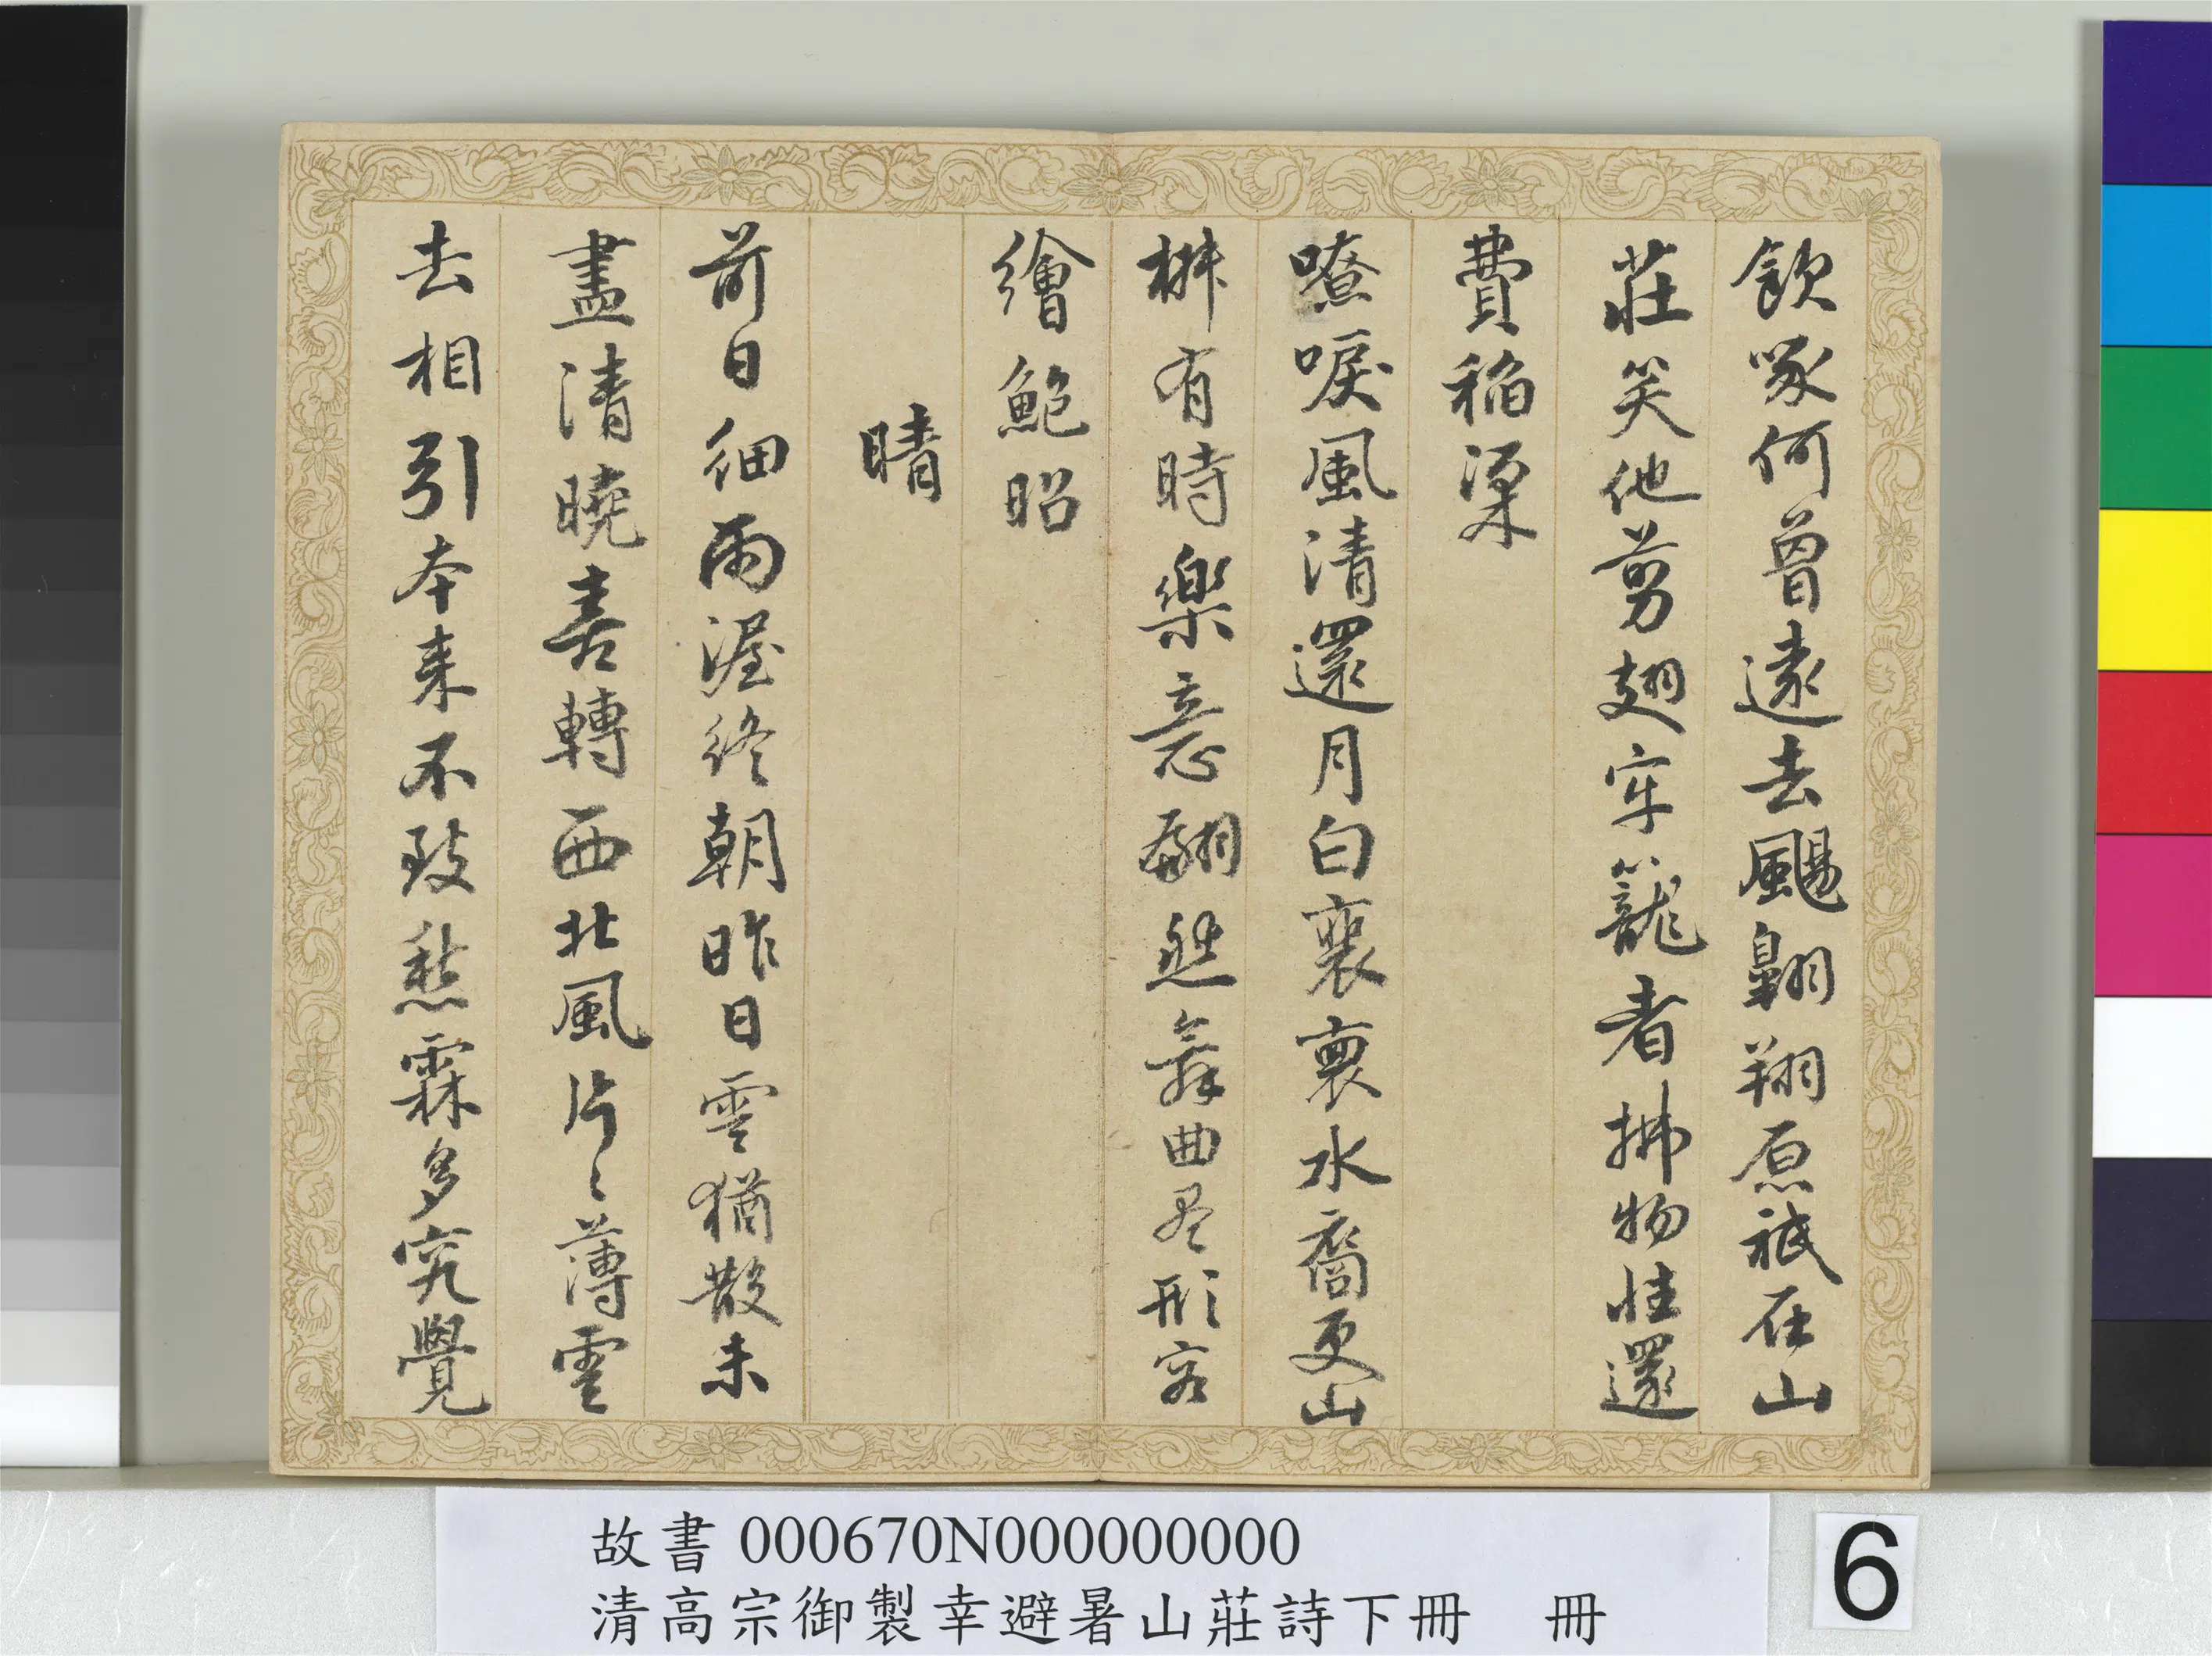 飲啄何曾遠去颺翱翔原祗在山
莊笑他剪翅牢籠者拂物性還
費稻粱
嘹唳風清還月白裵裏水裔更山
椒有時樂意翻然舞曲尽形容
繪鮑昭
晴
前日細雨渥終朝昨日雲猶散未
盡清曉喜轉西北風片〻薄雲
去相引本来不致愁霖多究覺
故書 000670N000000000
清高宗御製幸避暑山莊詩下冊 冊
6